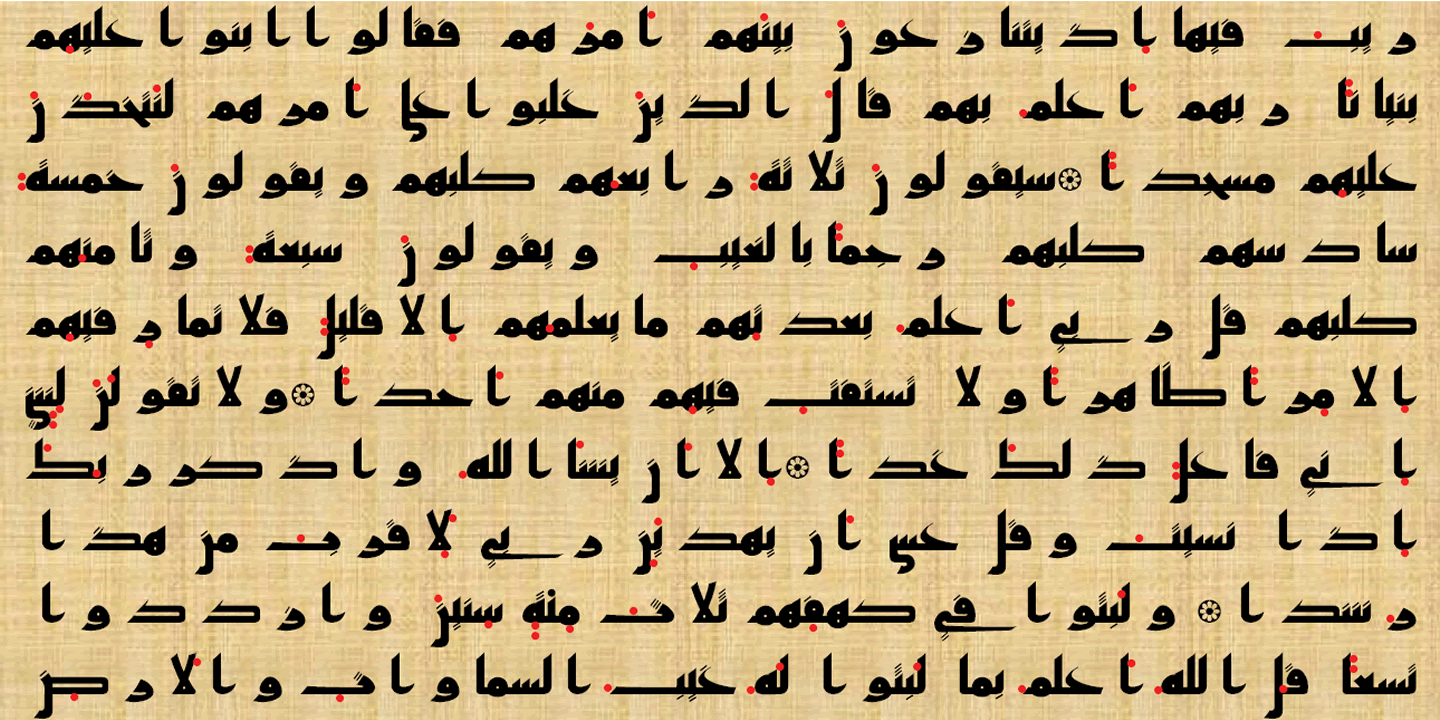 ريب فيها اذ يتنازعون بينهم امرهم فقالوا ابنوا عليهم
بنيانا ربهم اعلم بهم قال الذين غلبوا على امرهم لنتخذن
عليهم مسجدا ۝ سيقولون ثلاثة رابعهم كلبهم ويقولون خمسة
سادسهم كلبهم رجما بالغيب ويقولون سبعة وثامنهم
كلبهم قل ربي اعلم بعدتهم ما يعلمهم الا قليل فلا تمار فيهم
الا مرا ظاهرا ولا تستفت فيهم منهم احدا ۝ ولا تقولن لشي
اني فاعل ذلك غدا ۝ الا ان يشا الله واذكر ربك
اذا نسيت وقل عسى ان يهدين ربي لاقرب من هذا
رشدا ۝ ولبثوا في كهفهم ثلاث مئة سنين وازدادوا
تسعا قل الله اعلم بما لبثوا له غيب السماوات والارض